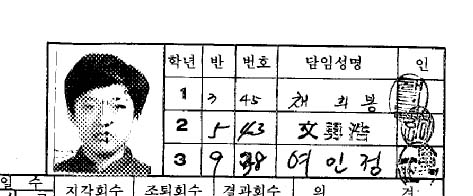 학년 반 번호 담임성명 인
1 3 45 채희봉
2 5 43 文
3 9 38 여인정
일 수
지각회수 조퇴회수 결과회수 의 견